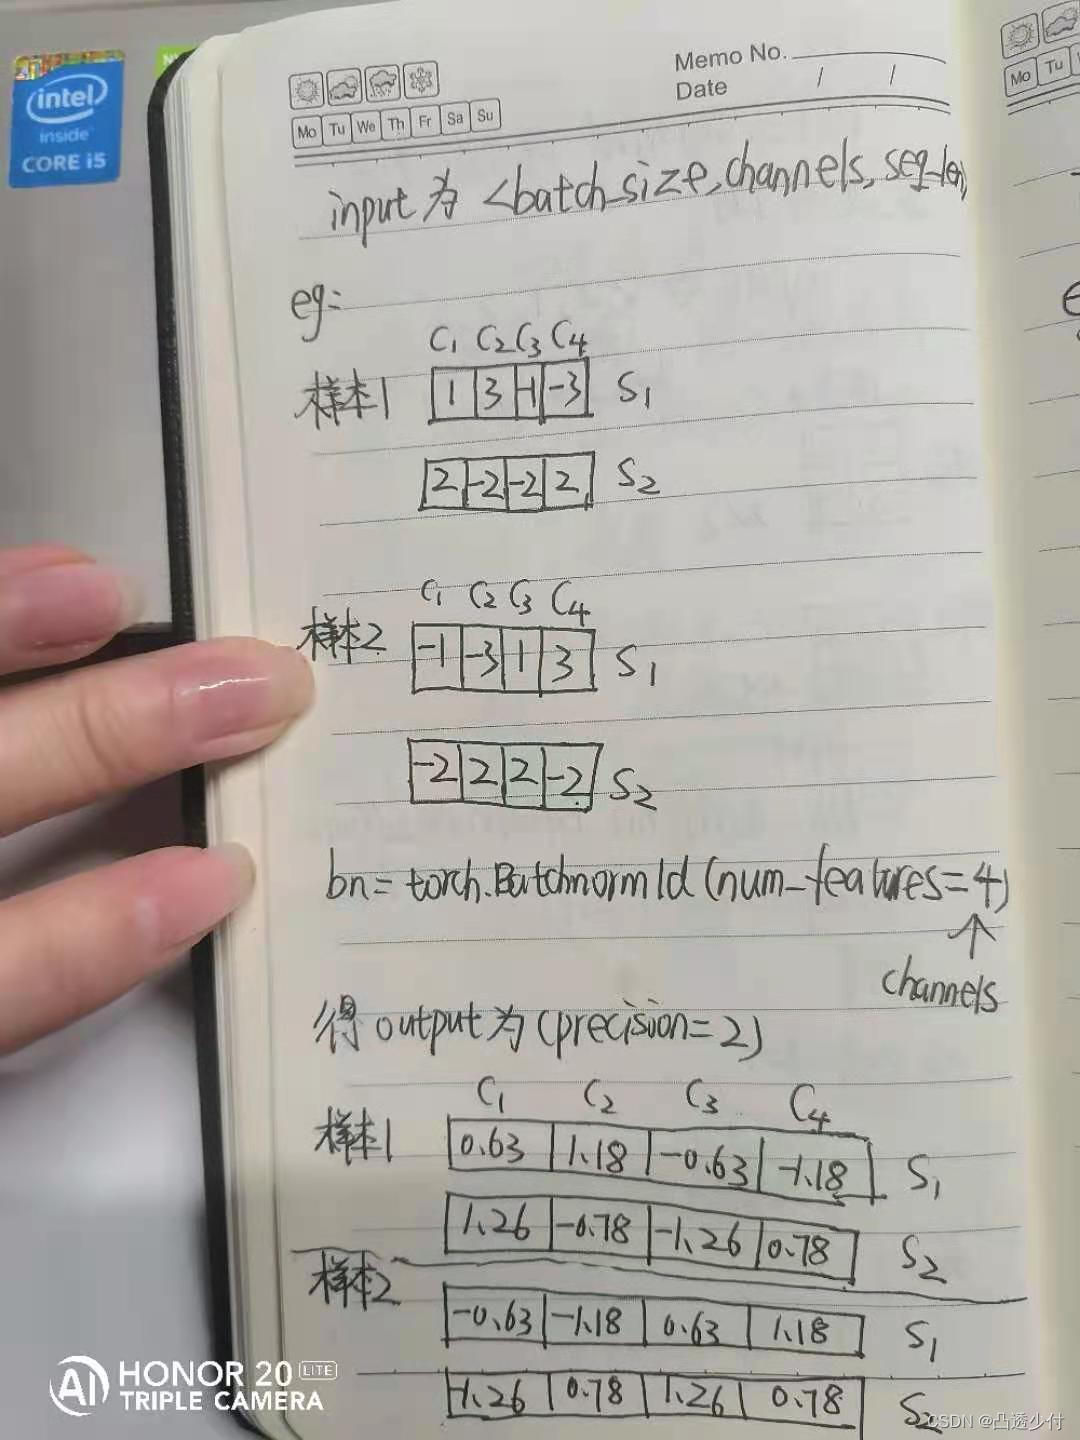 intel
inside
CORE i5
Memo No.
Date / /
Mo Tu We Th Fr Sa Su
Mo Tu
input 为 <batch_size, channels, seq_len
eg:
C1 C2 C3 C4
样本1 1 3 -1 -3 S1
2 -2 -2 2 S2
C1 C2 C3 C4
样本2 -1 -3 1 3 S1
-2 2 2 -2 S2
bn = torch.Batchnorm1d (num_features=4)
channels
得 output 为 (precision=2)
C1 C2 C3 C4
样本1 0.63 1.18 -0.63 -1.18 S1
1.26 -0.78 -1.26 0.78 S2
样本2 -0.63 -1.18 0.63 1.18 S1
-1.26 0.78 1.26 0.78 S2
HONOR 20 LITE
TRIPLE CAMERA
CSDN @凸透少付